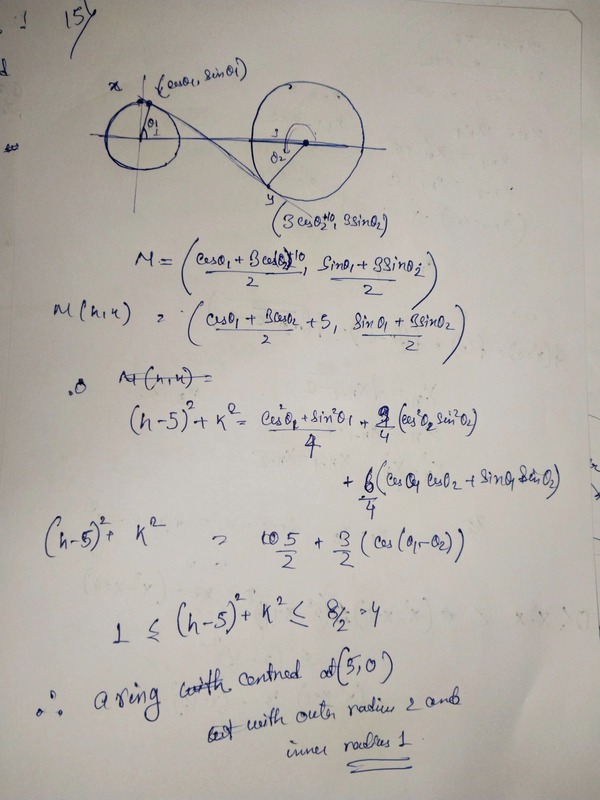 1 15)
x (cosθ₁, sinθ₁)
θ₁ 1 3
θ₂
y
(3cosθ₂+10, 3sinθ₂)
M = ((cosθ₁ + 3cosθ₂+10)/2, (sinθ₁ + 3sinθ₂)/2)
M(h,k) = ((cosθ₁ + 3cosθ₂)/2 + 5, (sinθ₁ + 3sinθ₂)/2)
M(h,k) =
(h-5)² + k² = (cos²θ₁ + sin²θ₁)/4 + 9/4 (cos²θ₂ sin²θ₂)
+ 6/4 (cosθ₁ cosθ₂ + sinθ₁ sinθ₂)
(h-5)² + k² = 5/2 + 3/2 (cos(θ₁-θ₂))
1 ≤ (h-5)² + k² ≤ 8/2 = 4
∴ a ring with centred at (5,0)
with outer radius 2 and
inner radius 1